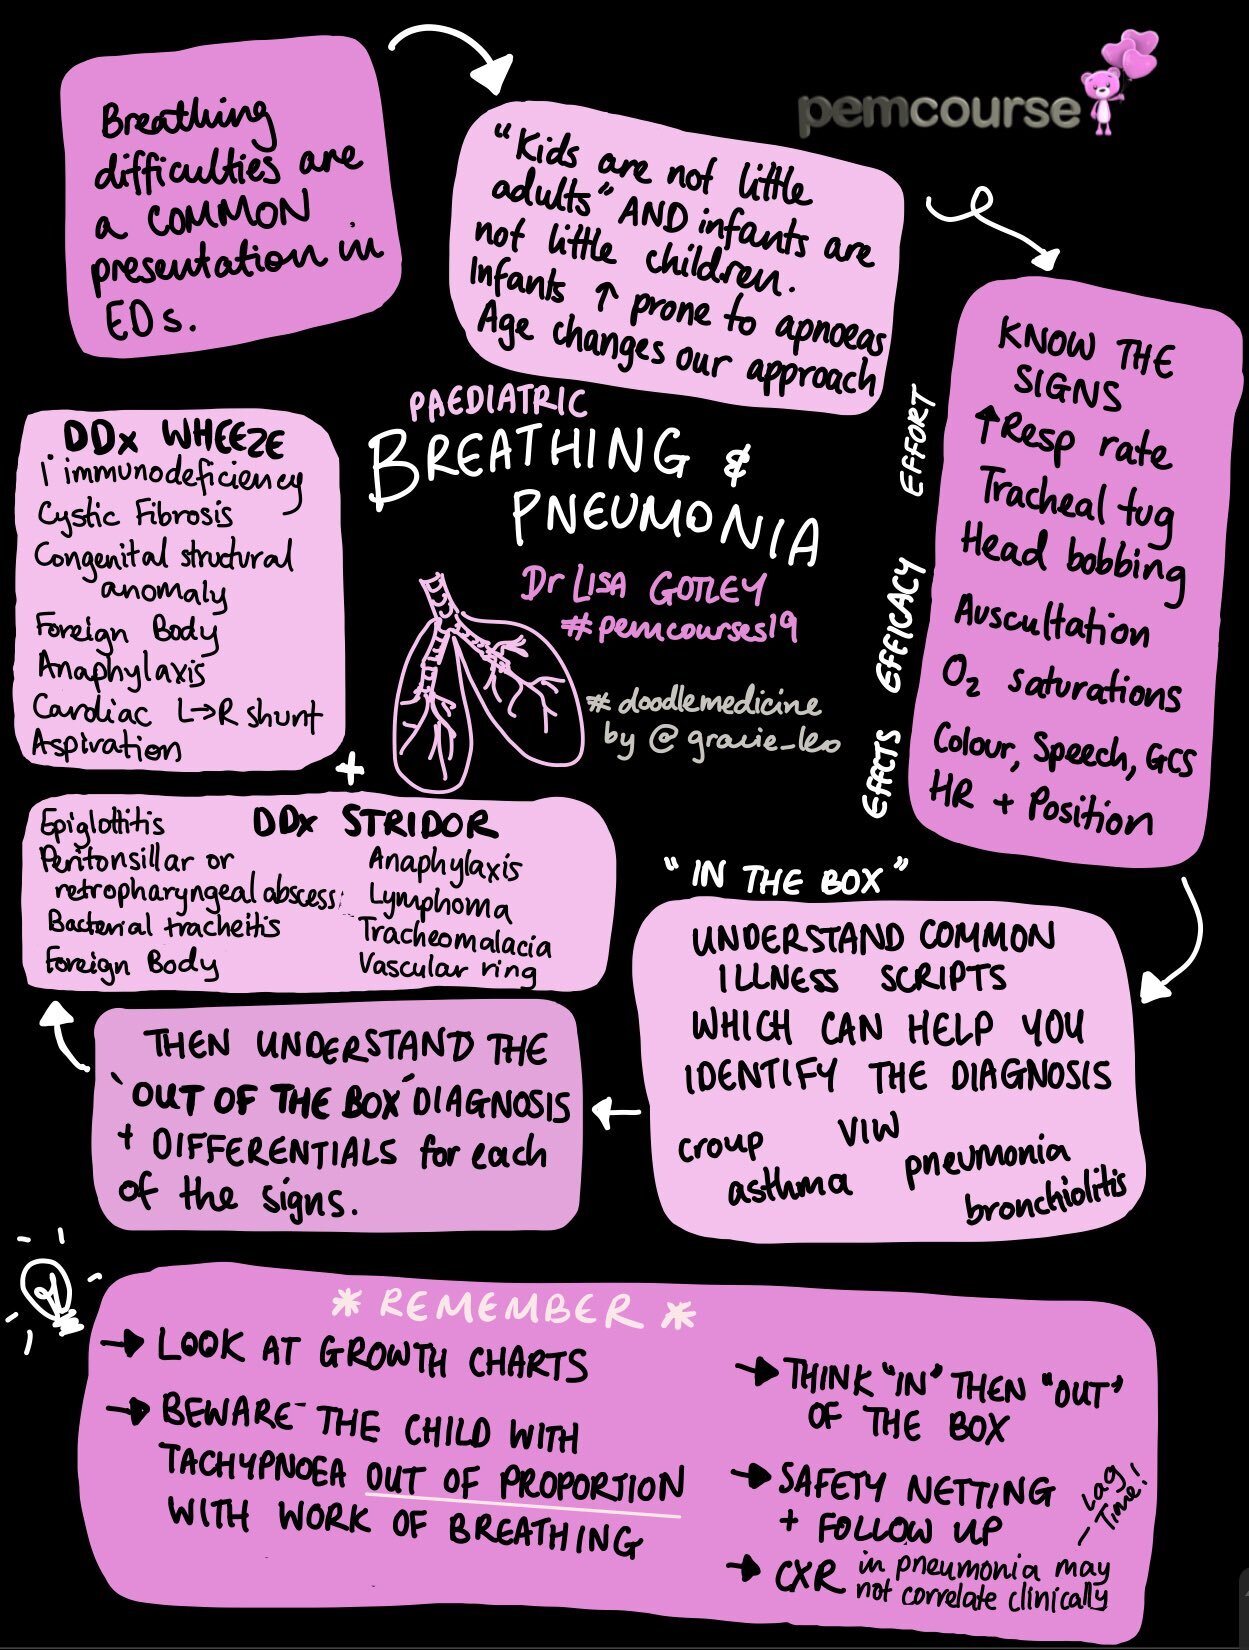 Breathing
difficulties are
a COMMON
presentation in
EDs.
"Kids are not little
adults" AND infants are
not little children.
Infants ↑ prone to apnoeas
Age changes our approach
pemcourse
KNOW THE
SIGNS
EFFORT
↑Resp rate
Tracheal tug
Head bobbing
EFFICACY
Auscultation
O₂ saturations
EFFECTS
Colour, Speech, GCS
HR + Position
PAEDIATRIC
BREATHING &
PNEUMONIA
Dr LISA GOTLEY
#pemcourses19
#doodlemedicine
by @gracie_leo
"IN THE BOX"
UNDERSTAND COMMON
ILLNESS SCRIPTS
WHICH CAN HELP YOU
IDENTIFY THE DIAGNOSIS
croup VIW
asthma pneumonia
bronchiolitis
THEN UNDERSTAND THE
'OUT OF THE BOX' DIAGNOSIS
+ DIFFERENTIALS for each
of the signs.
DDx WHEEZE
1° immunodeficiency
Cystic Fibrosis
Congenital structural
anomaly
Foreign Body
Anaphylaxis
Cardiac L→R shunt
Aspiration
+
DDx STRIDOR
Epiglottitis
Peritonsillar or
retropharyngeal abscess
Bacterial tracheitis
Foreign Body
Anaphylaxis
Lymphoma
Tracheomalacia
Vascular ring
* REMEMBER *
→ LOOK AT GROWTH CHARTS
→ BEWARE THE CHILD WITH
TACHYPNOEA OUT OF PROPORTION
WITH WORK OF BREATHING
→ THINK "IN" THEN "OUT"
OF THE BOX
→ SAFETY NETTING
+ FOLLOW UP
- Lag
Time!
→ CXR in pneumonia may
not correlate clinically